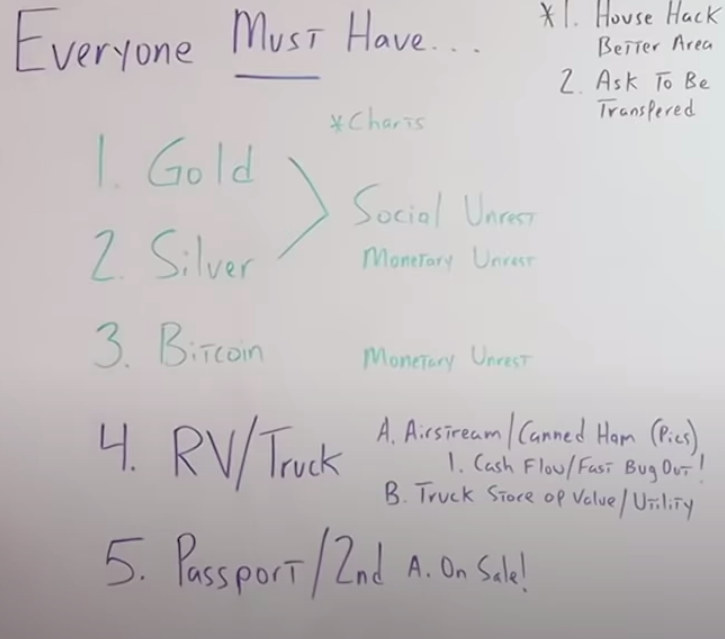 Everyone Must Have...
*1. House Hack
Better Area
2. Ask To Be
Transfered
*Charts
1. Gold
2. Silver
Social Unrest
Monetary Unrest
3. Bitcoin
Monetary Unrest
4. RV/Truck
A. Airstream/Canned Ham (Pics)
1. Cash Flow/Fast Bug Out!
B. Truck Store of Value/Utility
5. Passport/2nd
A. On Sale!